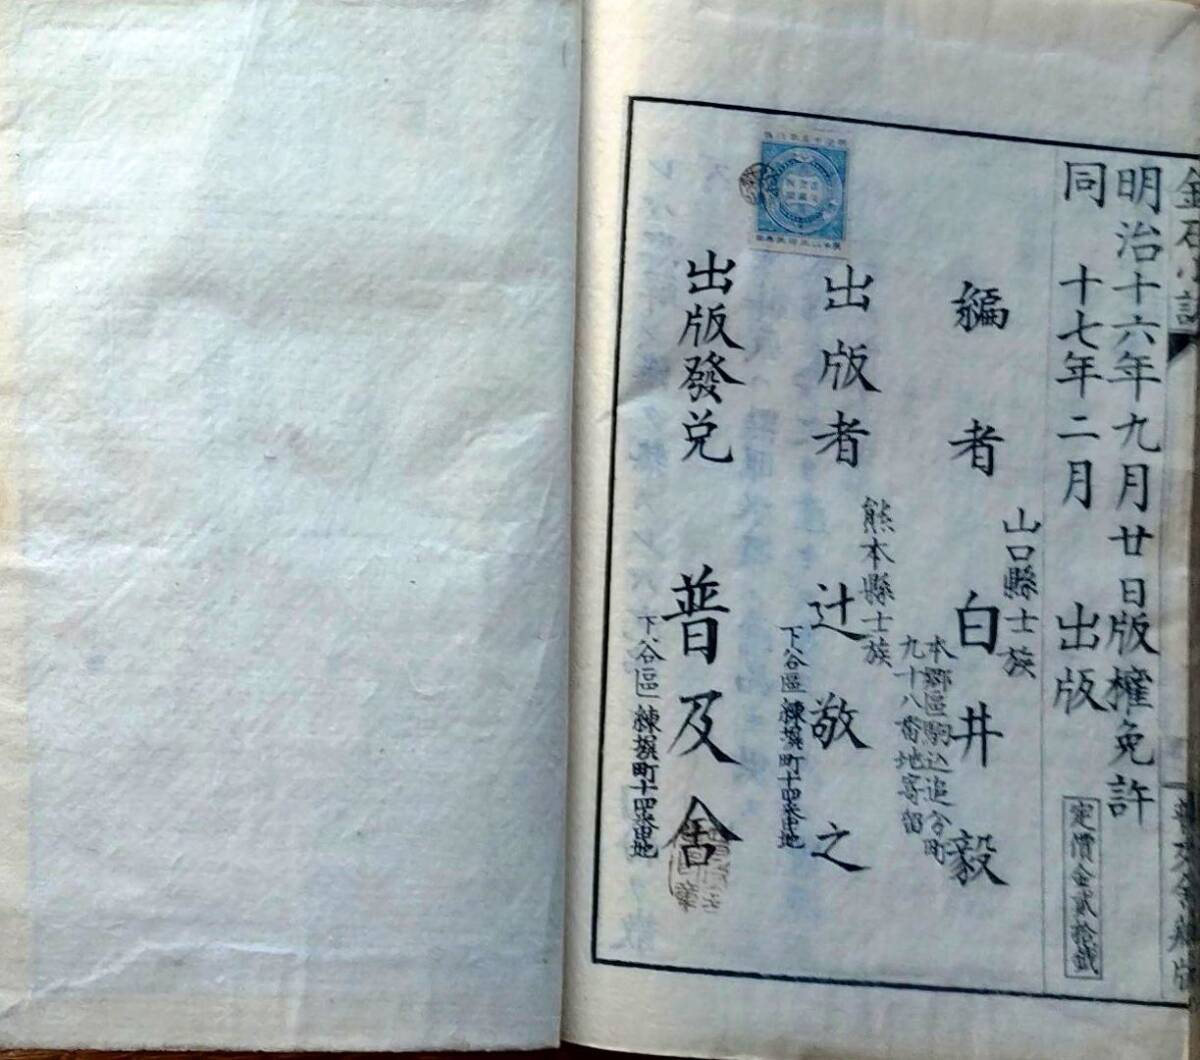 明治十六年九月廿日版權免許
同 十七年二月 出版
定價金貳拾錢
編者
山口縣士族
白井毅
本郷區駒込追分町
九十八番地寄留
出版者
熊本縣士族
辻敬之
下谷區練塀町十四番地
出版發兌
普及舍
下谷區練塀町十四番地